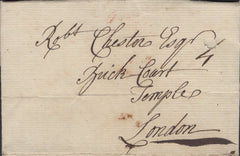 Robt Chester Esqr
4
Brick Court
Temple
London